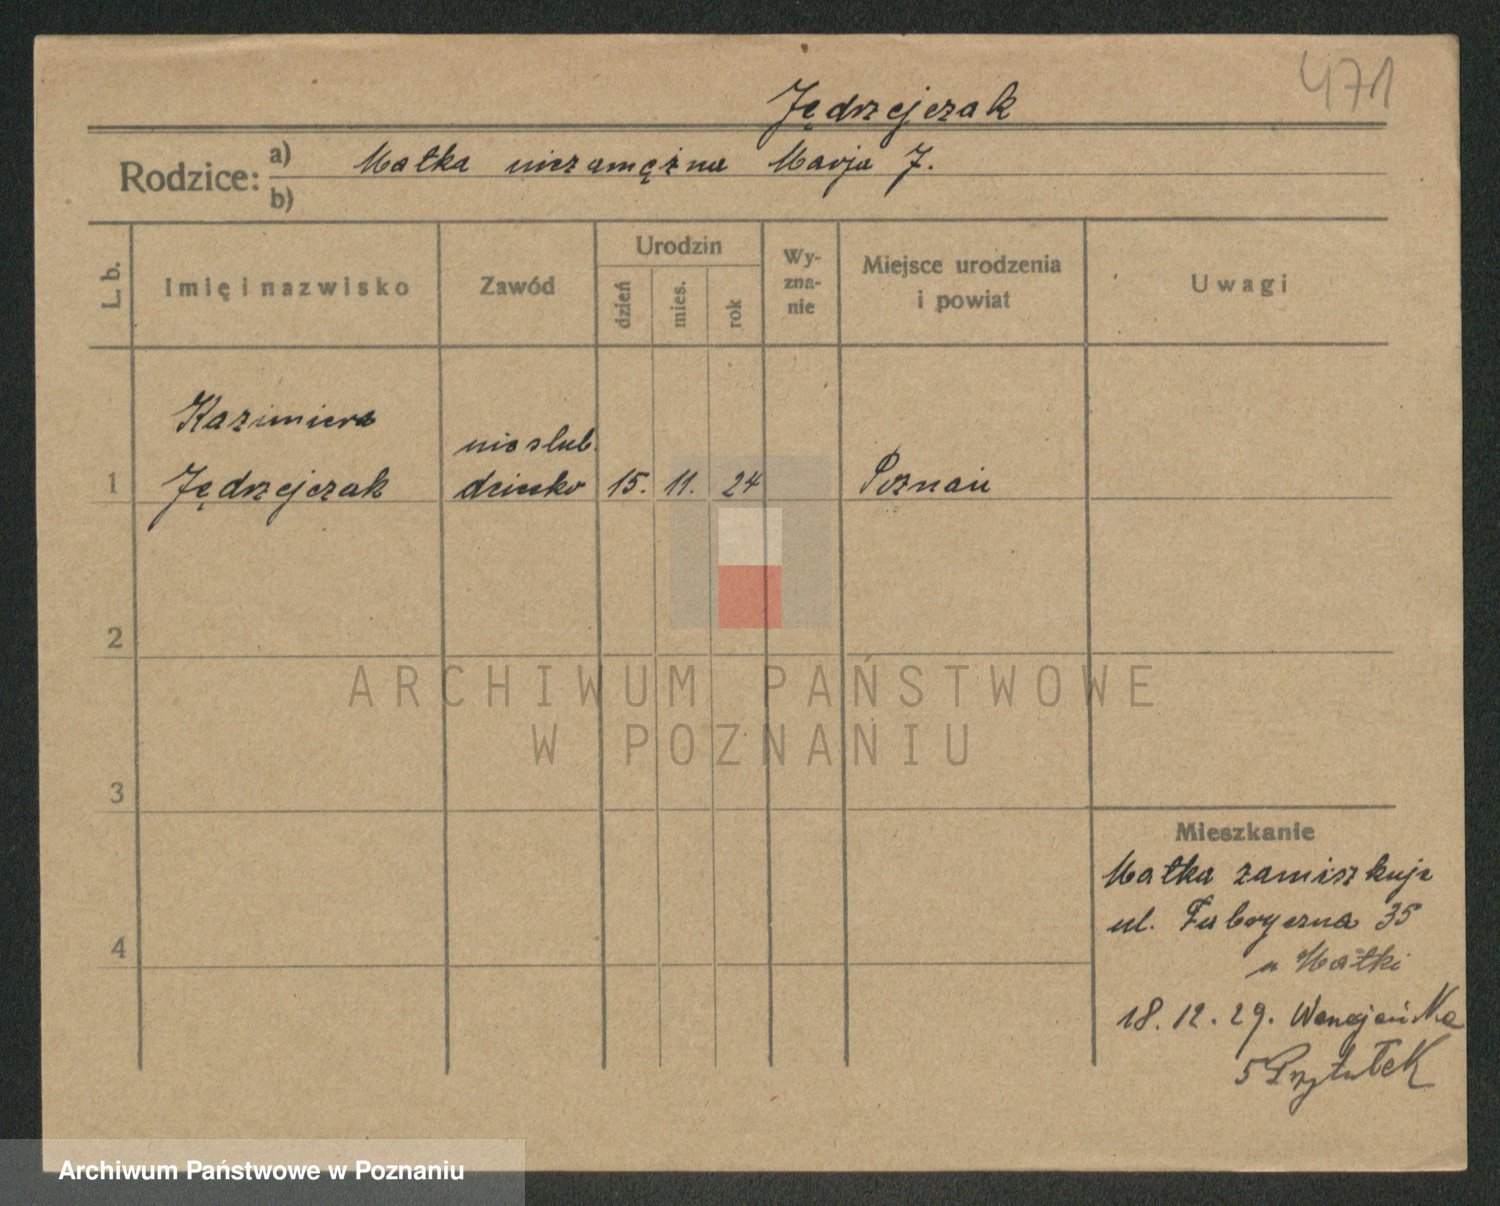 471
Jędrzejczak
Rodzice: a) Matka niezamężna Marja J.
b)
L. b.
Imię i nazwisko
Zawód
Urodzin
dzień
mies.
rok
Wy-
zna-
nie
Miejsce urodzenia
i powiat
Uwagi
Kazimiera
nieslub.
1 Jędrzejczak dziecko 15. 11. 24 Poznań
2
3
4
Mieszkanie
Matka zamiszkuje
ul. Fabryczna 35
u Matki
18. 12. 29.
5 Przytułek
ARCHIWUM PAŃSTWOWE
W POZNANIU
Archiwum Państwowe w Poznaniu